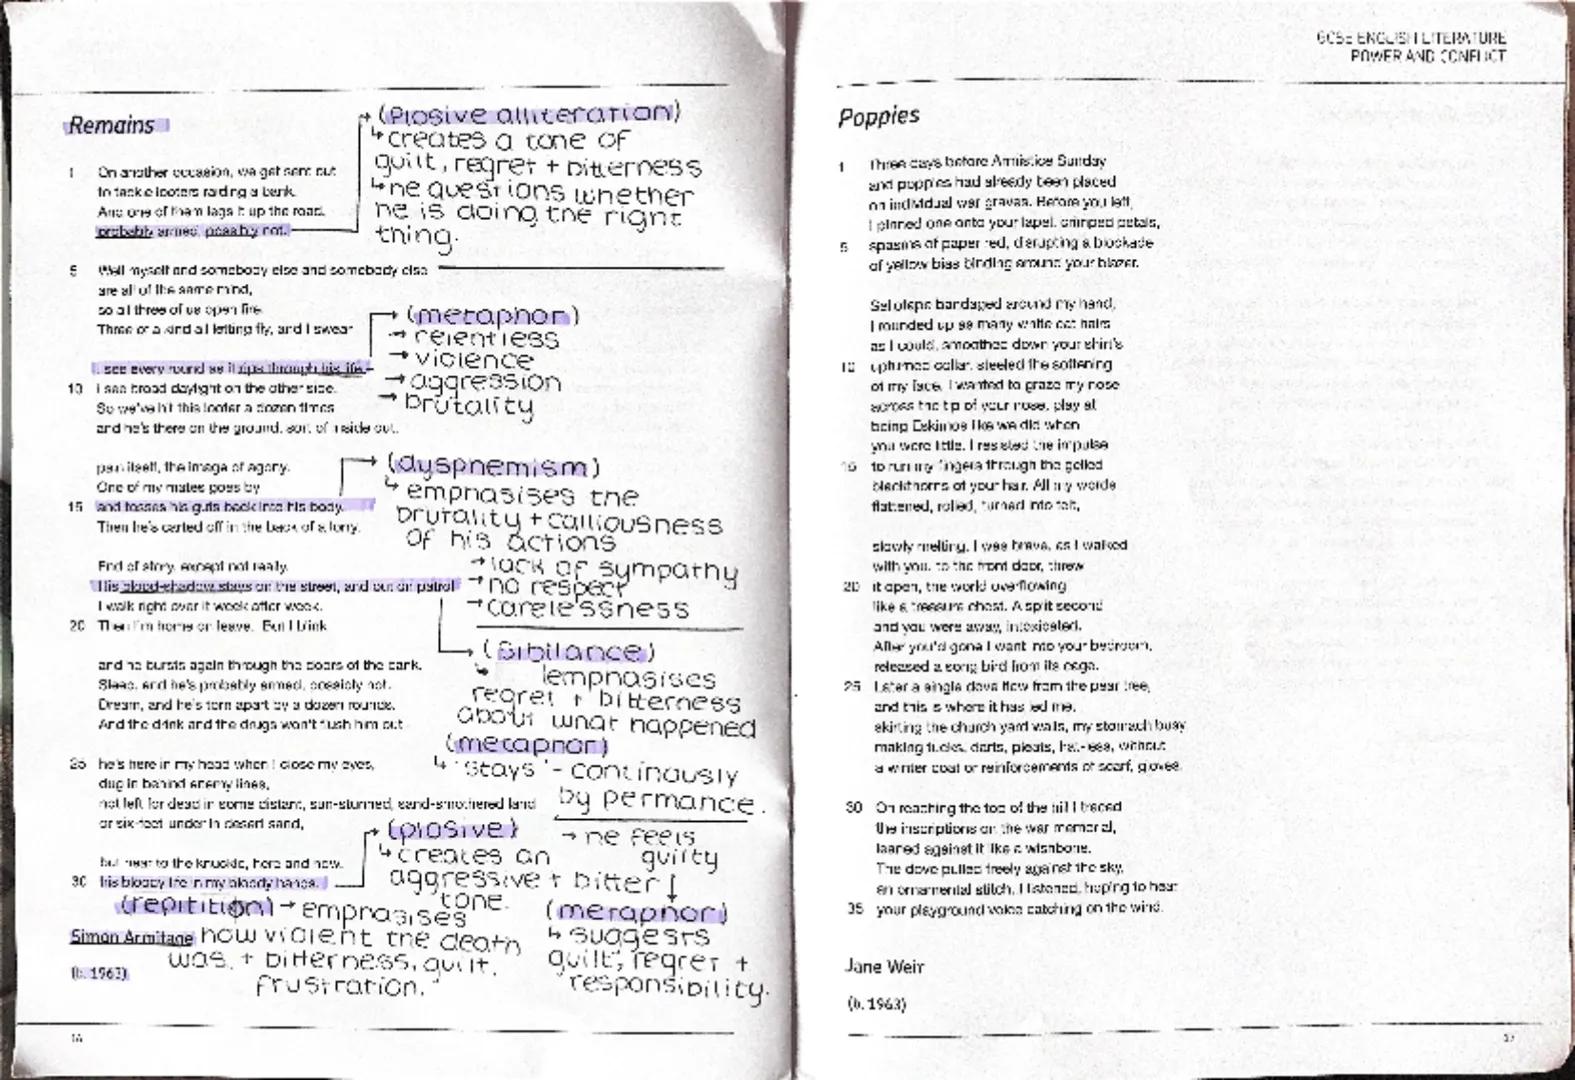 Remains
1 On another occasion, we get sent out
to tackle looters raiding a bank.
And one of them legs it up the road,
probably armed, possibly not.
5 Well myself and somebody else and somebody else
are all of the same mind,
so all three of us open fire.
Three of a kind all letting fly, and I swear
I see every round as it rips through his life –
10 I see broad daylight on the other side.
So we've hit this looter a dozen times
and he's there on the ground, sort of inside out,
pain itself, the image of agony.
One of my mates goes by
15 and tosses his guts back into his body.
Then he's carted off in the back of a lorry.
End of story, except not really.
His blood-shadow stays on the street, and out on patrol
I walk right over it week after week.
20 Then I'm home on leave. But I blink
and he bursts again through the doors of the bank.
Sleep, and he's probably armed, possibly not.
Dream, and he's torn apart by a dozen rounds.
And the drink and the drugs won't flush him out –
25 he's here in my head when I close my eyes,
dug in behind enemy lines,
not left for dead in some distant, sun-stunned, sand-smothered land
or six-feet-under in desert sand,
but near to the knuckle, here and now,
30 his bloody life in my bloody hands.
Simon Armitage
(b. 1963)
16
→ (Plosive alliteration)
↳ creates a tone of
guilt, regret + bitterness
↳ he questions whether
he is doing the right
thing.
→ (metaphor)
→ relentless
→ violence
→ aggression
→ brutality
→ (dysphemism)
↳ emphasises the
brutality + calliousness
of his actions
→ lack of sympathy
→ no respect
→ carelessness
→ (Sibilance)
↳ emphasises
regret + bitterness
about what happened
(metaphor)
↳ 'stays' - continously
by permance.
→ he feels
guilty
→ (plosive)
↳ creates an
aggressive + bitter
tone.
(repitition) → emphasises
how violent the death
was. + bitterness, guilt,
frustration."
(metaphor)
↳ suggests
guilt, regret +
responsibility.
GCSE ENGLISH LITERATURE
POWER AND CONFLICT
Poppies
1 Three days before Armistice Sunday
and poppies had already been placed
on individual war graves. Before you left,
I pinned one onto your lapel, crimped petals,
5 spasms of paper red, disrupting a blockade
of yellow bias binding around your blazer.
Sellotape bandaged around my hand,
I rounded up as many white cat hairs
as I could, smoothed down your shirt's
10 upturned collar, steeled the softening
of my face. I wanted to graze my nose
across the tip of your nose, play at
being Eskimos like we did when
you were little. I resisted the impulse
15 to run my fingers through the gelled
blackthorns of your hair. All my words
flattened, rolled, turned into felt,
slowly melting. I was brave, as I walked
with you, to the front door, threw
20 it open, the world overflowing
like a treasure chest. A split second
and you were away, intoxicated.
After you'd gone I went into your bedroom,
released a song bird from its cage.
25 Later a single dove flew from the pear tree,
and this is where it has led me,
skirting the church yard walls, my stomach busy
making tucks, darts, pleats, hat-less, without
a winter coat or reinforcements of scarf, gloves.
30 On reaching the top of the hill I traced
the inscriptions on the war memorial,
leaned against it like a wishbone.
The dove pulled freely against the sky,
an ornamental stitch. I listened, hoping to hear
35 your playground voice catching on the wind.
Jane Weir
(b. 1963)
17